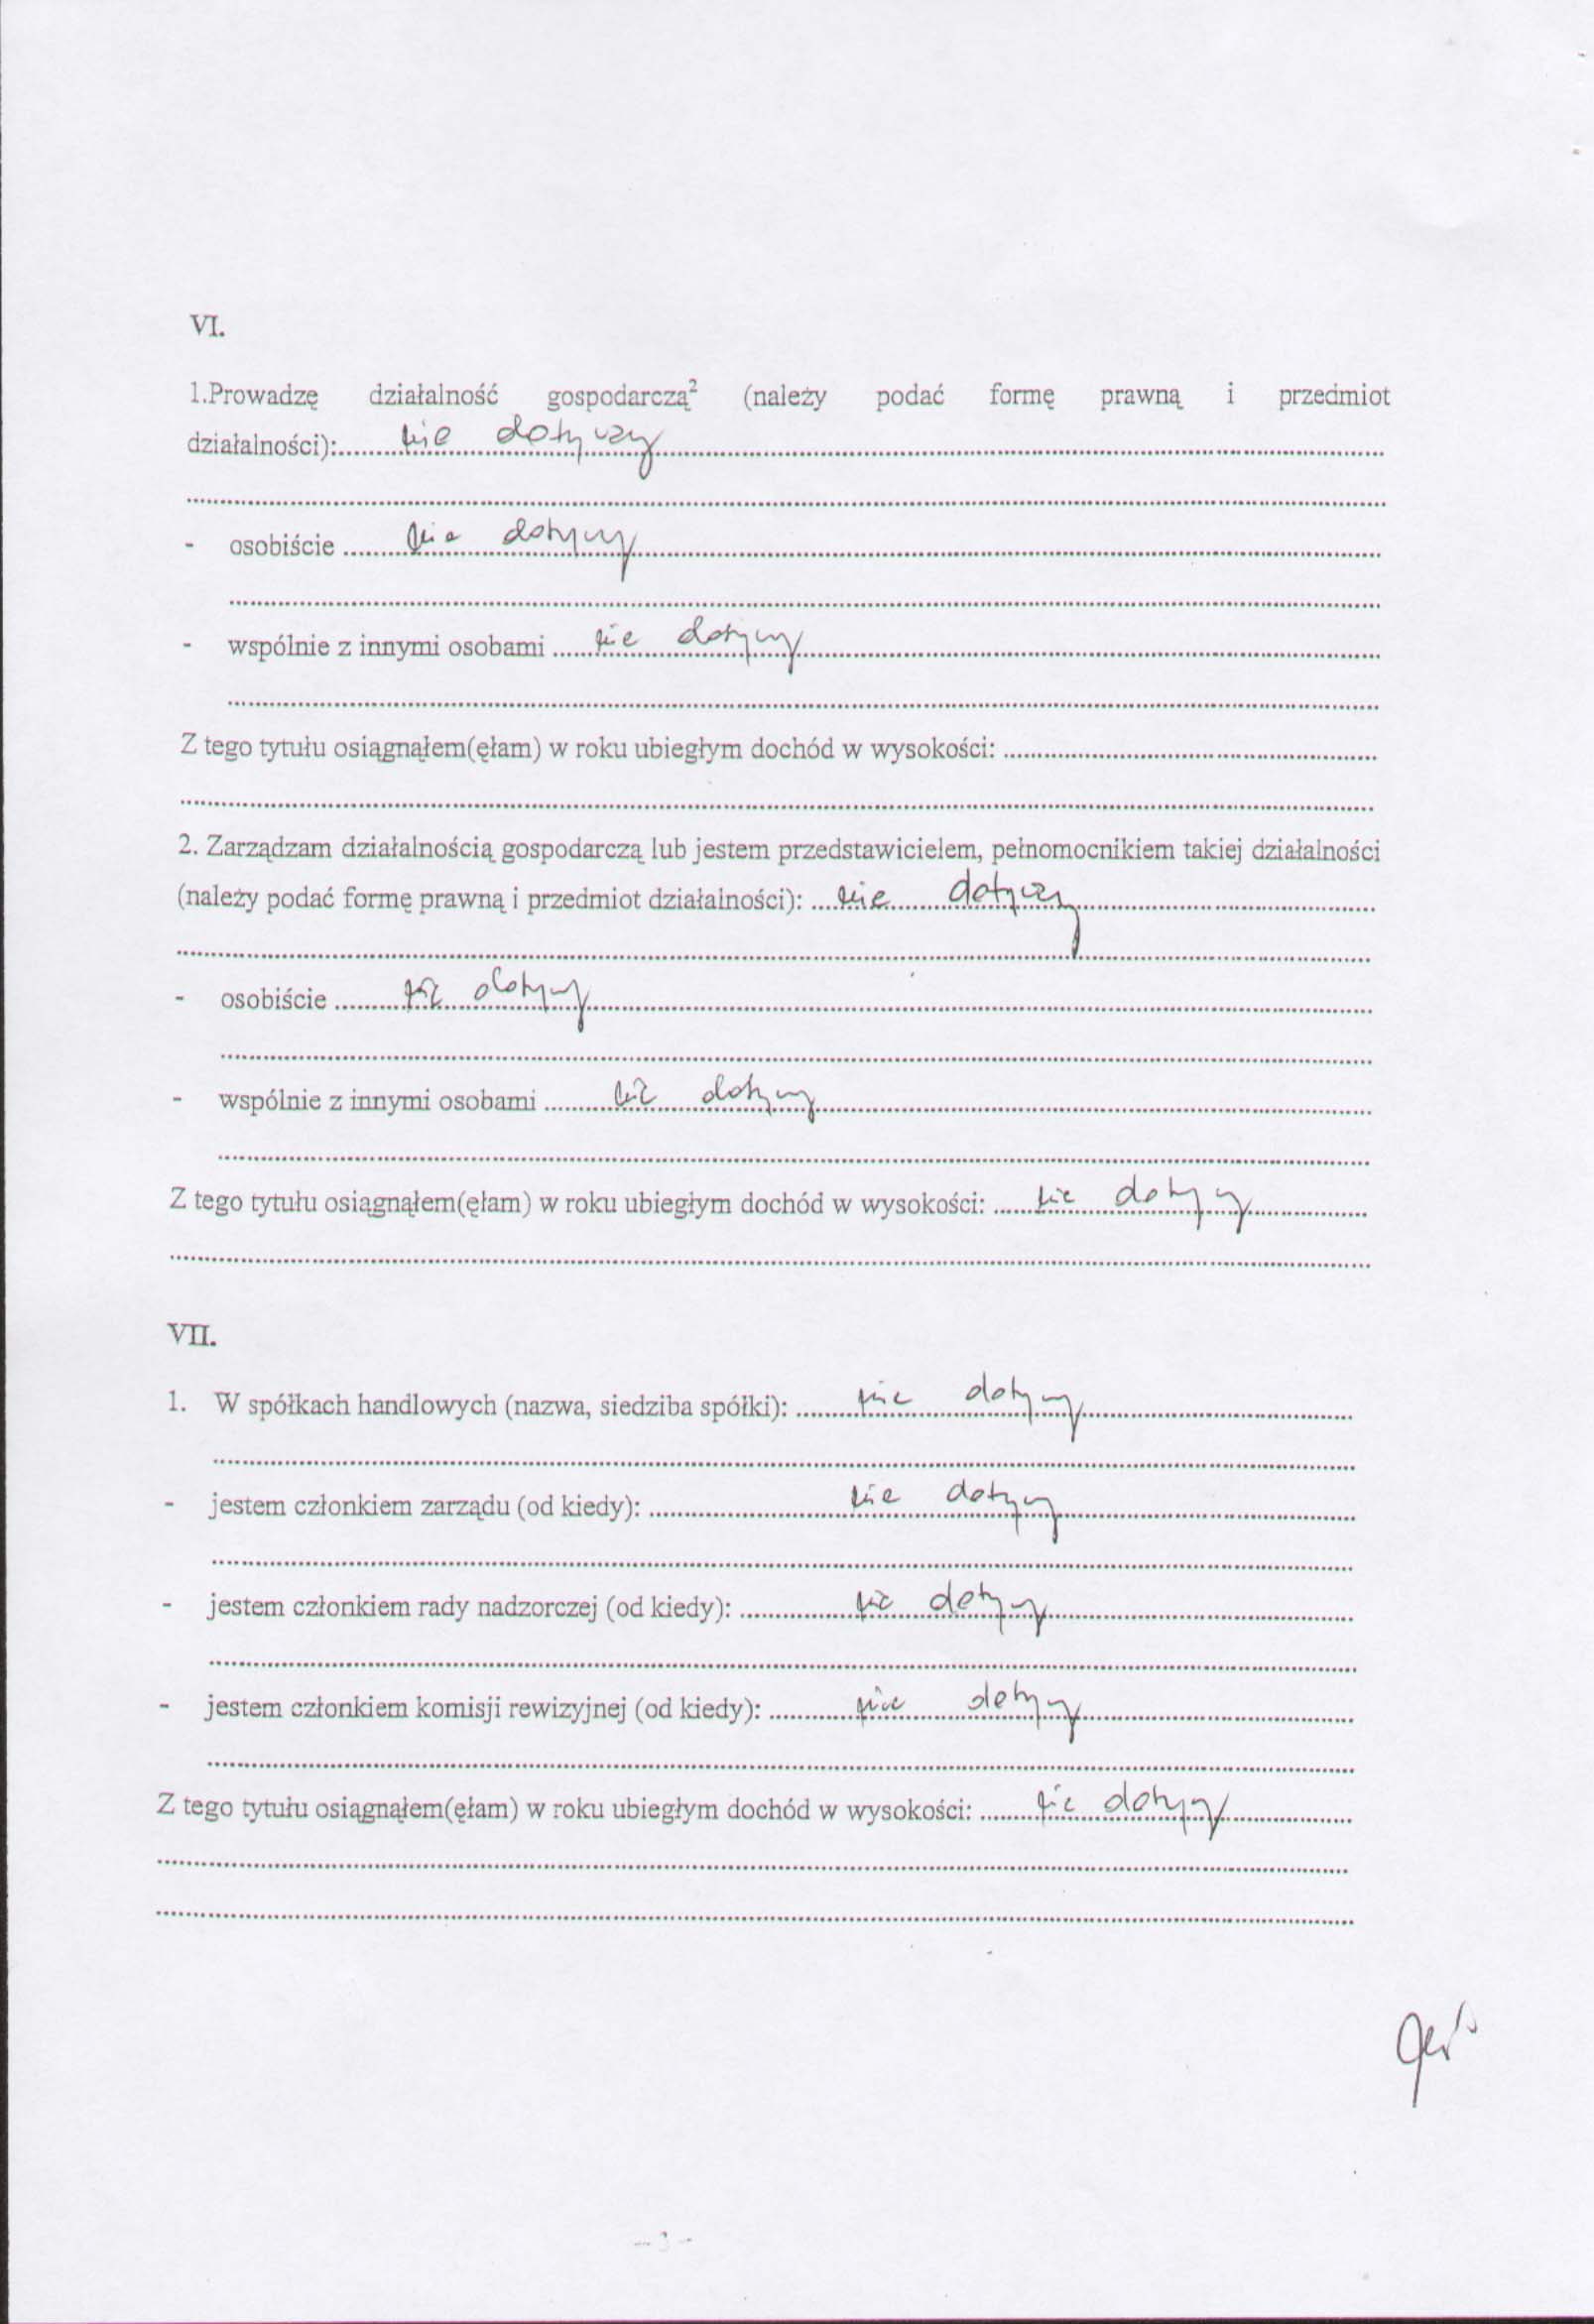 VI.
1.Prowadzę działalność gospodarczą² (należy podać formę prawną i przedmiot
działalności):......nie dotyczy......
......
- osobiście ......nie dotyczy......
......
- wspólnie z innymi osobami ......nie dotyczy......
......
Z tego tytułu osiągnąłem(ęłam) w roku ubiegłym dochód w wysokości: ......
......
2. Zarządzam działalnością gospodarczą lub jestem przedstawicielem, pełnomocnikiem takiej działalności
(należy podać formę prawną i przedmiot działalności): ......nie dotyczy......
......
- osobiście ......nie dotyczy......
......
- wspólnie z innymi osobami ......nie dotyczy......
......
Z tego tytułu osiągnąłem(ęłam) w roku ubiegłym dochód w wysokości: ......nie dotyczy......
......
VII.
1. W spółkach handlowych (nazwa, siedziba spółki): ......nie dotyczy......
......
- jestem członkiem zarządu (od kiedy): ......nie dotyczy......
......
- jestem członkiem rady nadzorczej (od kiedy): ......nie dotyczy......
......
- jestem członkiem komisji rewizyjnej (od kiedy): ......nie dotyczy......
......
Z tego tytułu osiągnąłem(ęłam) w roku ubiegłym dochód w wysokości: ......nie dotyczy......
......
......